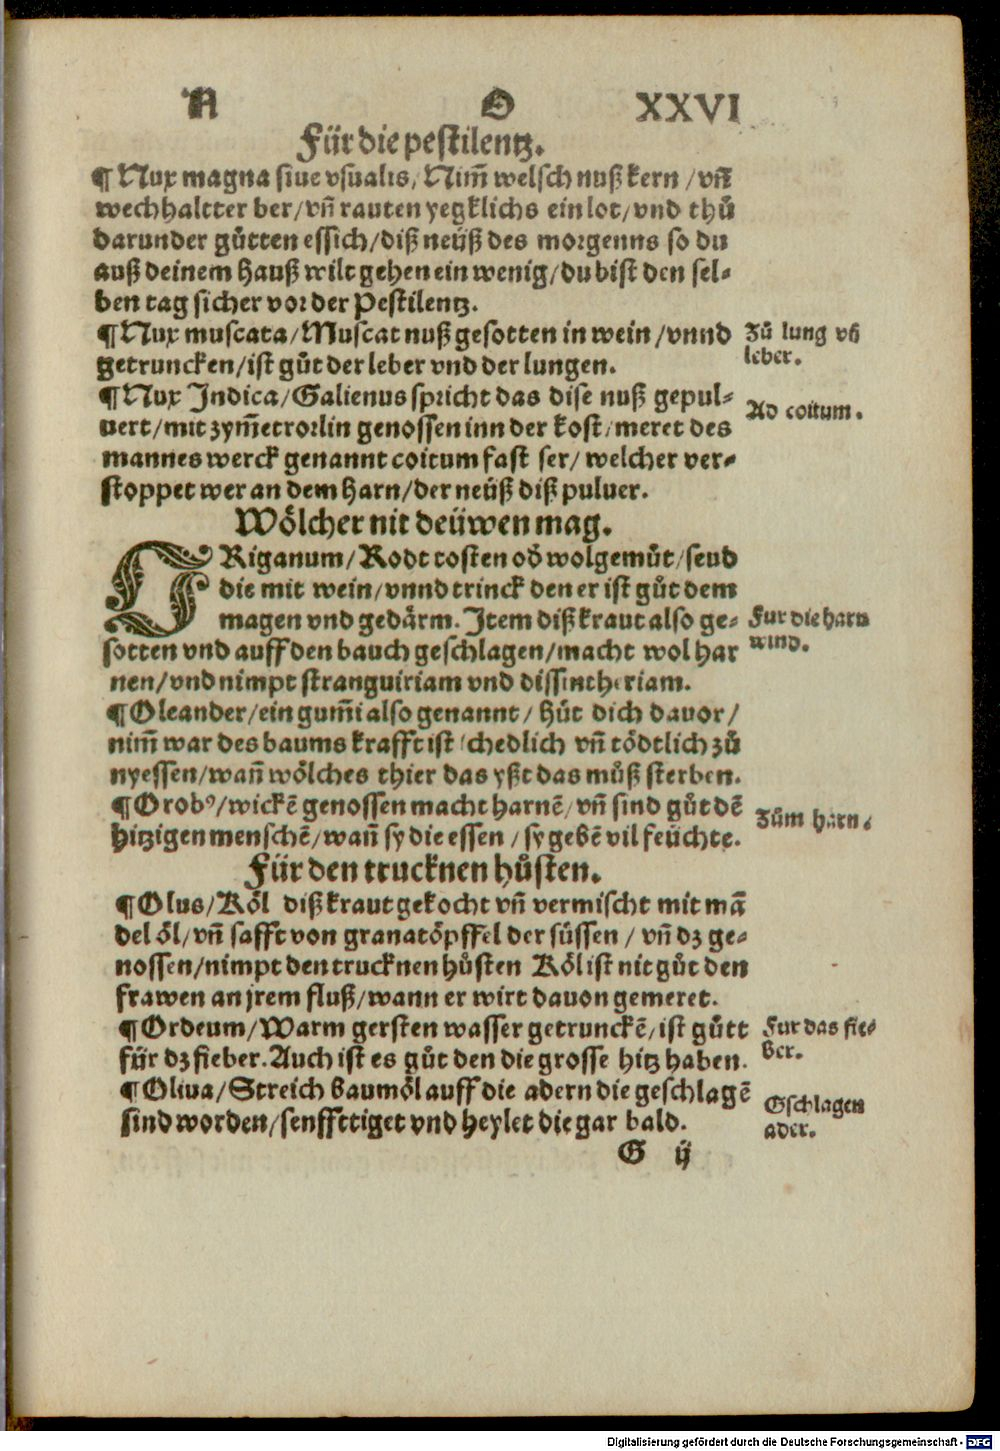 N O XXVI
Für die pestilentz.
¶ Nux magna siue vsualis/ Nim̄ welsch nuß kern / vn̄
wechhaltter ber/ vn̄ rauten yegklichs ein lot/ vnd thů
darunder gůtten essich/ diß neüß des morgenns so du
auß deinem hauß wilt gehen ein wenig/ du bist den sel-
ben tag sicher vor der Pestilentz.
¶ Nux muscata/ Muscat nuß gesotten in wein / vnnd
getruncken/ ist gůt der leber vnd der lungen.
Zů lung vñ
leber.
¶ Nux Indica/ Galienus spricht das dise nuß gepul-
uert/ mit zym̄etrorlin genossen inn der kost/ meret des
mannes werck genannt coitum fast ser/ welcher ver-
stoppet wer an dem harn/ der neüß diß puluer.
Ad coitum.
Wölcher nit deüwen mag.
ORiganum/ Rodt costen od wolgemůt/ seud
die mit wein/ vnnd trinck den er ist gůt dem
magen vnd gedärm. Item diß kraut also ge-
sotten vnd auff den bauch geschlagen/ macht wol har
nen/ vnd nimpt stranguiriam vnd dissintheriam.
Fur die harn
wind.
¶ Oleander/ ein gum̄i also genannt/ hůt dich dauor/
nim̄ war des baums krafft ist schedlich vn̄ tödtlich zů
nyessen/ wan̄ wölches thier das yßt das můß sterben.
¶ Orobꝰ/ wickē genossen macht harnē/ vn̄ sind gůt dē
hitzigen menschē/ wan̄ sy die essen / sy gebē vil feüchte.
Zům harn.
Für den trucknen hůsten.
¶ Olus/ Köl diß kraut gekocht vn̄ vermischt mit mā
del öl/ vn̄ safft von granatöpffel der süssen / vn̄ dz ge-
nossen/ nimpt den trucknen hůsten Köl ist nit gůt den
frawen an jrem fluß/ wann er wirt dauon gemeret.
¶ Ordeum/ Warm gersten wasser getrunckē/ ist gůtt
für dz fieber. Auch ist es gůt den die grosse hitz haben.
Fur das fie-
ber.
¶ Oliua/ Streich baumöl auff die adern die geschlagē
sind worden/ senffttiget vnd heylet die gar bald.
Gschlagen
ader.
G ij
Digitalisierung gefördert durch die Deutsche Forschungsgemeinschaft - DFG